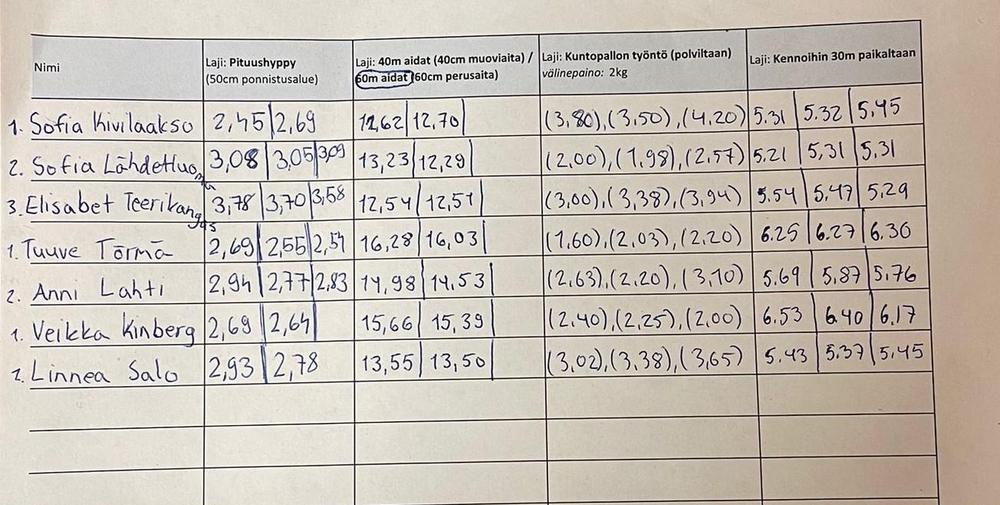 Nimi | Laji: Pituushyppy (50cm ponnistusalue) | Laji: 40m aidat (40cm muoviaita) / 60m aidat (60cm perusaita) | Laji: Kuntopallon työntö (polviltaan) välinepaino: 2kg | Laji: Kennoihin 30m paikaltaan
1. Sofia Kivilaakso | 2,45 | 2,69 | 12,62 | 12,70 | (3,80), (3,50), (4,20) | 5.31 | 5.32 | 5,45
2. Sofia Lähdetluoma | 3,08 | 3,05 | 3,09 | 13,23 | 12,29 | (2,00), (1,98), (2,57) | 5.21 | 5,31 | 5.31
3. Elisabet Teerikangas | 3,78 | 3,70 | 3,58 | 12,54 | 12,51 | (3,00), (3,38), (3,94) | 5.54 | 5.47 | 5,29
1. Tuuve Törmä | 2,69 | 2,55 | 2,54 | 16,28 | 16,03 | (1,60), (2,03), (2,20) | 6.25 | 6.27 | 6.30
2. Anni Lahti | 2,94 | 2,77 | 2,83 | 14,98 | 14,53 | (2,63), (2,20), (3,10) | 5.69 | 5,87 | 5.76
1. Veikka Kinberg | 2,69 | 2,64 | 15,66 | 15,39 | (2,40), (2,25), (2,00) | 6.53 | 6.40 | 6,17
2. Linnea Salo | 2,93 | 2,78 | 13,55 | 13,50 | (3,02), (3,38), (3,65) | 5.43 | 5.37 | 5,45